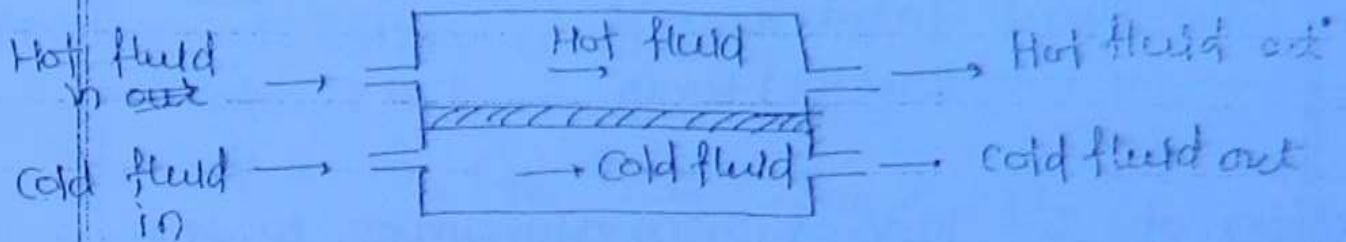 Hot fluid
in out
Hot fluid
Hot fluid out
Cold fluid
in
Cold fluid
Cold fluid out